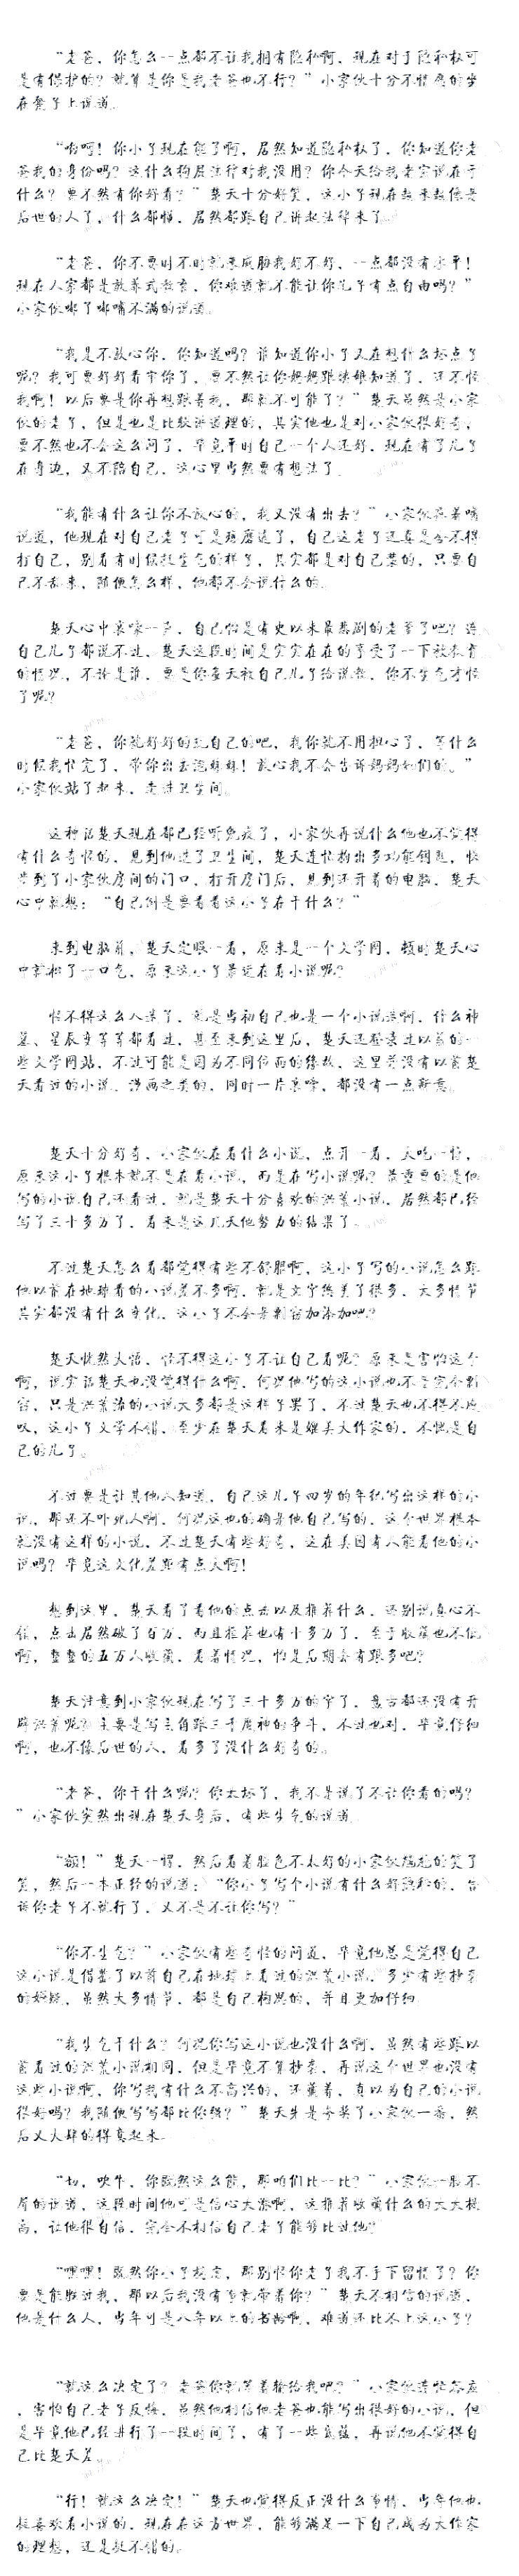 “老爸，你怎么一点都不让我拥有隐私啊，现在对于隐私权可
是有保护的？就算是你是我老爸也不行？”小家伙十分不情愿的坐
在凳子上说道。
“哟呵！你小子现在能了啊，居然知道隐私权了，你知道你老
爸我的身份吗？这什么狗屁法律对我没用？你今天给我老实说在干
什么？要不然有你好看？”楚天十分好笑，这小子现在越来越像是
后世的人了，什么都懂，居然都跟自己讲起法律来了。
“老爸，你不要时不时就来威胁我好不好，一点都没有水平！
现在人家都是放养式教育，你难道就不能让你儿子有点自由吗？”
小家伙嘟了嘟嘴不满的说道。
“我是不放心你，你知道吗？谁知道你小子又在想什么坏点子
呢？我可要好好看牢你了，要不然让你妈妈跟姨娘知道了，还不怪
我啊！以后要是你再想跟着我，那就不可能了？”楚天虽然是小家
伙的老子，但是也是比较讲道理的，其实他也是对小家伙很好奇，
要不然也不会这么问了，毕竟平时自己一个人还好，现在有了儿子
在身边，又不陪自己，这心里当然要有想法了。
“我能有什么让你不放心的，我又没有出去？”小家伙撅着嘴
说道，他现在对自己老子可是琢磨透了，自己这老子还真是舍不得
打自己，别看有时候挺生气的样子，其实都是对自己装的，只要自
己不乱来，随便怎么样，他都不会说什么的。
楚天心中哀嚎一声，自己怕是有史以来最悲剧的老爹了吧？连
自己儿子都说不过，楚天这段时间是实实在在的享受了一下被教育
的情况，不论是谁，要是你每天被自己儿子给说教，你不生气才怪
了呢？
“老爸，你就好好的玩自己的吧，我你就不用担心了，等什么
时候我忙完了，带你出去泡妹妹！放心我不会告诉妈妈她们的。”
小家伙站了起来，走进卫生间。
这种话楚天现在都已经听免疫了，小家伙再说什么他也不觉得
有什么奇怪的，见到他进了卫生间，楚天连忙掏出多功能钥匙，快
步到了小家伙房间的门口，打开房门后，见到还开着的电脑，楚天
心中就想：“自己倒是要看看这小子在干什么？”
来到电脑前，楚天定眼一看，原来是一个文学网，顿时楚天心
中就松了一口气，原来这小子最近在看小说呢？
怪不得这么入迷了，就是当初自己也是一个小说迷啊，什么神
墓、星辰变等等都看过，甚至来到这里后，楚天还登录过以前的一
些文学网站，不过可能是因为不同位面的缘故，这里并没有以前楚
天看过的小说、漫画之类的，同时一片凛哗，都没有一点新意。
楚天十分好奇，小家伙在看什么小说，点开一看，大吃一惊，
原来这小子根本就不是在看小说，而是在写小说呢？最重要的是他
写的小说自己还看过，就是楚天十分喜欢的洪荒小说，居然都已经
写了三十多万了，看来是这几天他努力的结果了。
不过楚天怎么看都觉得有些不舒服啊，这小子写的小说怎么跟
他以前在地球看的小说差不多啊，就是文字优美了很多，大多情节
其实都没有什么变化，这小子不会是剽窃加添加吧？
楚天恍然大悟，怪不得这小子不让自己看呢？原来是害怕这个
啊，说实话楚天也没觉得什么啊，何况他写的这小说也不是完全剽
窃，只是洪荒流的小说大多都是这样子罢了，不过楚天也不得不感
叹，这小子文学不错，至少在楚天看来是媲美大作家的，不愧是自
己的儿子。
不过要是让其他人知道，自己这儿子四岁的年纪写出这样的小
说，那还不吓死人啊，何况这也的确是他自己写的，这个世界根本
就没有这样的小说，不过楚天有些好奇，这在美国有人能看他的小
说吗？毕竟这文化差距有点大啊！
想到这里，楚天看了看他的点击以及推荐什么，还别说真心不
错，点击居然破了百万，而且推荐也有十多万了，至于收藏也不低
啊，整整的五万人收藏，看着情况，怕是后期会有跟多吧？
楚天注意到小家伙现在写了三十多万的字了，盘古都还没有开
辟洪荒呢？主要是写主角跟三千魔神的争斗，不过也对，毕竟仔细
啊，也不像后世的人，看多了没什么好奇的。
“老爸，你干什么呢？你太坏了，我不是说了不让你看的吗？
”小家伙突然出现在楚天身后，有些生气的说道。
“额！”楚天一愣，然后看着脸色不太好的小家伙尴尬的笑了
笑，然后一本正经的说道：“你小子写个小说有什么好隐私的，告
诉你老子不就行了，又不是不让你写？”
“你不生气？”小家伙有些奇怪的问道，毕竟他总是觉得自己
这小说是借鉴了以前自己在地球上看过的洪荒小说，多少有些抄袭
的嫌疑，虽然大多情节，都是自己构思的，并且更加仔细。
“我生气干什么？何况你写这小说也没什么啊，虽然有些跟以
前看过的洪荒小说相同，但是毕竟不算抄袭，再说这个世界也没有
这些小说啊，你写我有什么不高兴的，还藏着，真以为自己的小说
很好吗？我随便写写都比你强？”楚天先是夸奖了小家伙一番，然
后又大肆的得意起来。
“切，吹牛，你既然这么能，那咱们比一比？”小家伙一脸不
屑的说道，这段时间他可是信心大涨啊，这推荐收藏什么的大大提
高，让他很自信，完全不相信自己老子能够比过他？
“嘿嘿！既然你小子找虐，那别怪你老子我不手下留情了？你
要是能胜过我，那以后我没有事就带着你？”楚天不相信的说道，
他是什么人，当年可是八年以上的书龄啊，难道还比不上这小子？
“就这么决定了？老爸你就等着输给我吧？”小家伙连忙答应
，害怕自己老子反悔，虽然他相信他老爸也能写出很好的小说，但
是毕竟他已经进行了一段时间了，有了一些底蕴，再说他不觉得自
己比楚天差。
“行！就这么决定！”楚天也觉得反正没什么事情，当年他也
挺喜欢看小说的，现在在这方世界，能够满足一下自己成为大作家
的理想，还是挺不错的。